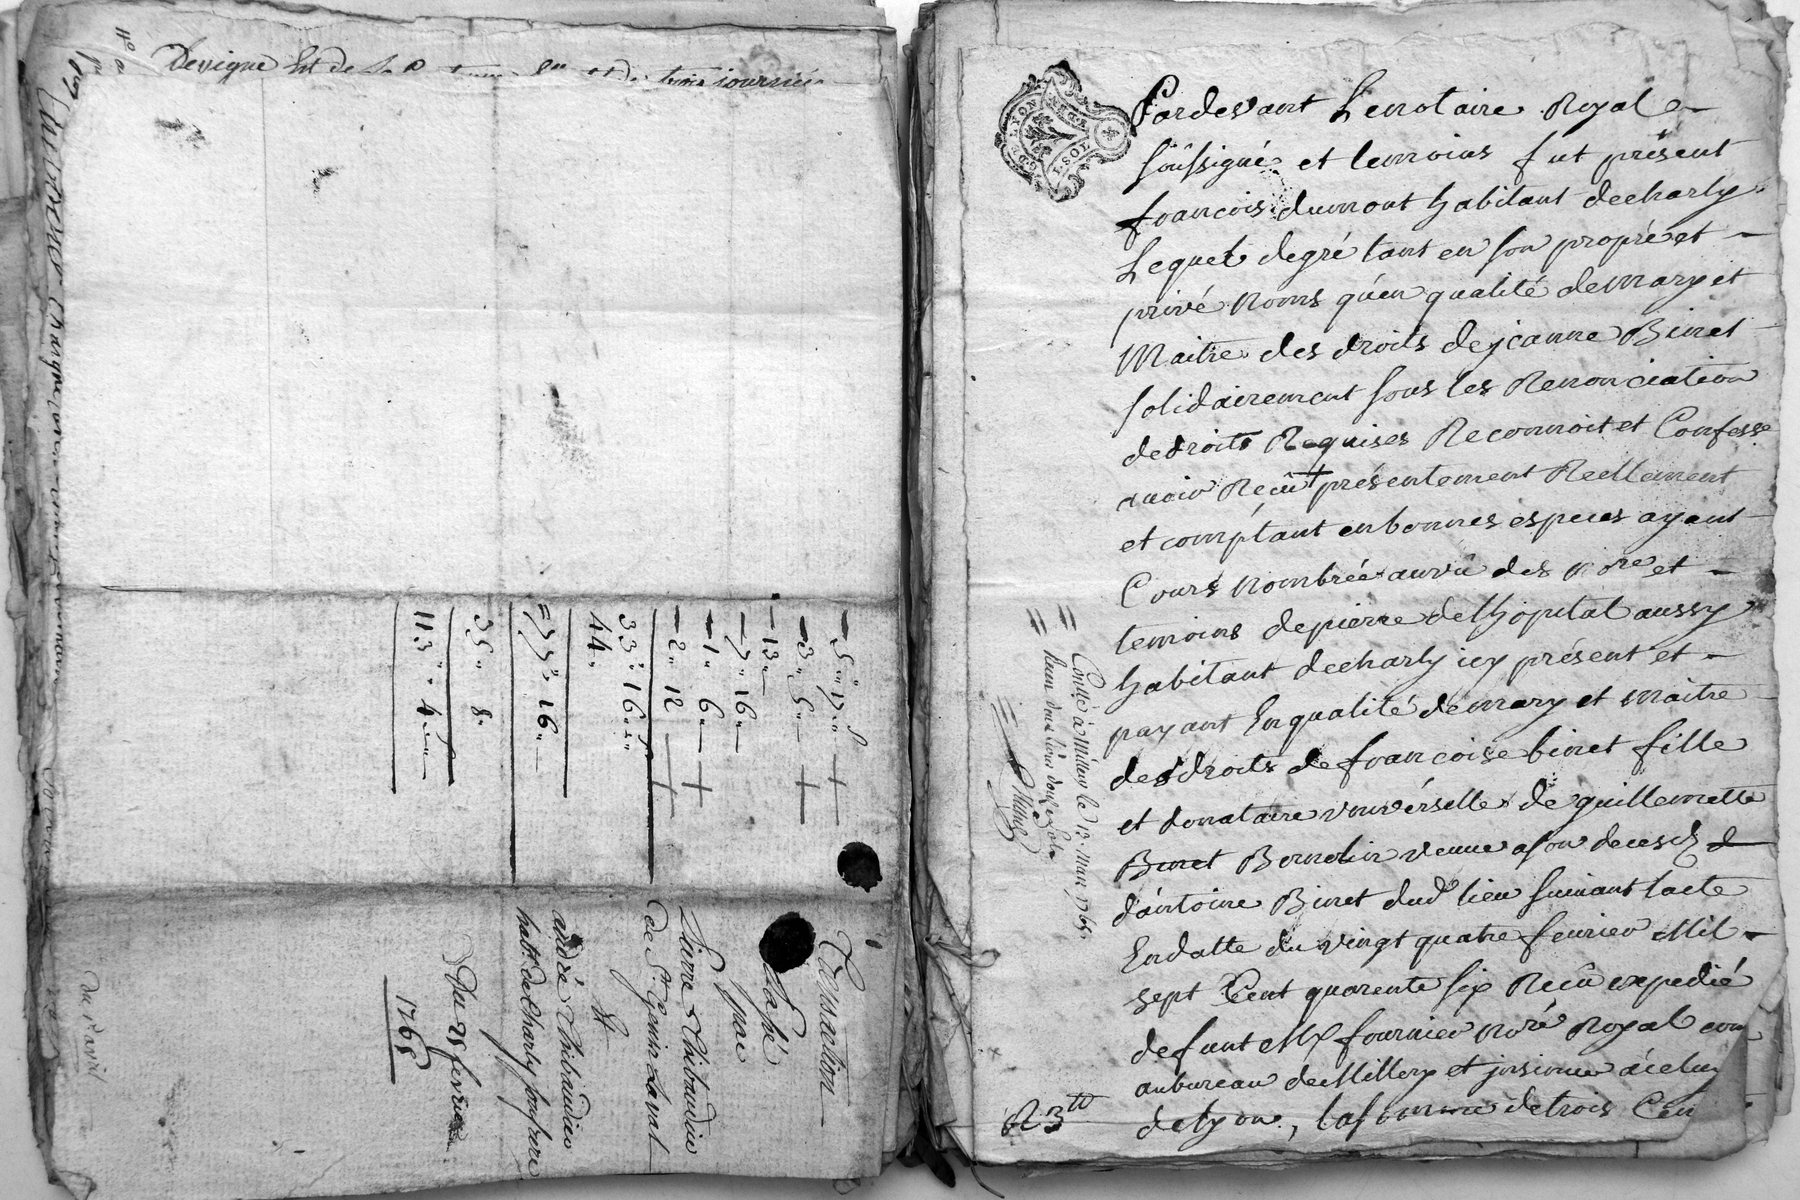 Devigne
trois journées
5" 17" +
3" 5" +
13"
7" 16"
1" 6" +
2" 12 +
33" 16"
44"
77" 16"
35" 8"
113" 4"
Transaction
passé
par
Pierre Thibaudier
de St Genis Laval
Et
andré Thibaudier
habt. de Charly son frere
Du 25 fevrier
1765
GDE LYON
1. SOL
Pardevant Lenotaire Royal
soussigné et temoins fut présent
françois dumont habitant decharly
Lequel degré tant en son propre et
privé noms qu'en qualité demary et
Maitre des droits dejeanne Binet
solidairement sous les Renonciation
dedroits Requises Reconnoit et Confesse
avoir Reçû présentement Reellement
et comptant en bonnes especes ayant
Cours nombrée auvû des nore et
temoins depierre delhopital aussy
habitant decharly icy présent et
payant Enqualité demary et maitre
desdroits defrançoise binet fille
et donataire universelle de guillemette
Binet Bernolin veuve asondecesd
d'antoine Binet dud lieu suivant lacte
Endatte du vingt quatre fevrier Mil
sept Cent quarente six Recû expedié
defunt Me fournier noré Royal con
aubureau demillery et insinué àcelui
delyon, lasomme detrois Cen
R 3tt
Conllé à Millery le 13 mars 1765.